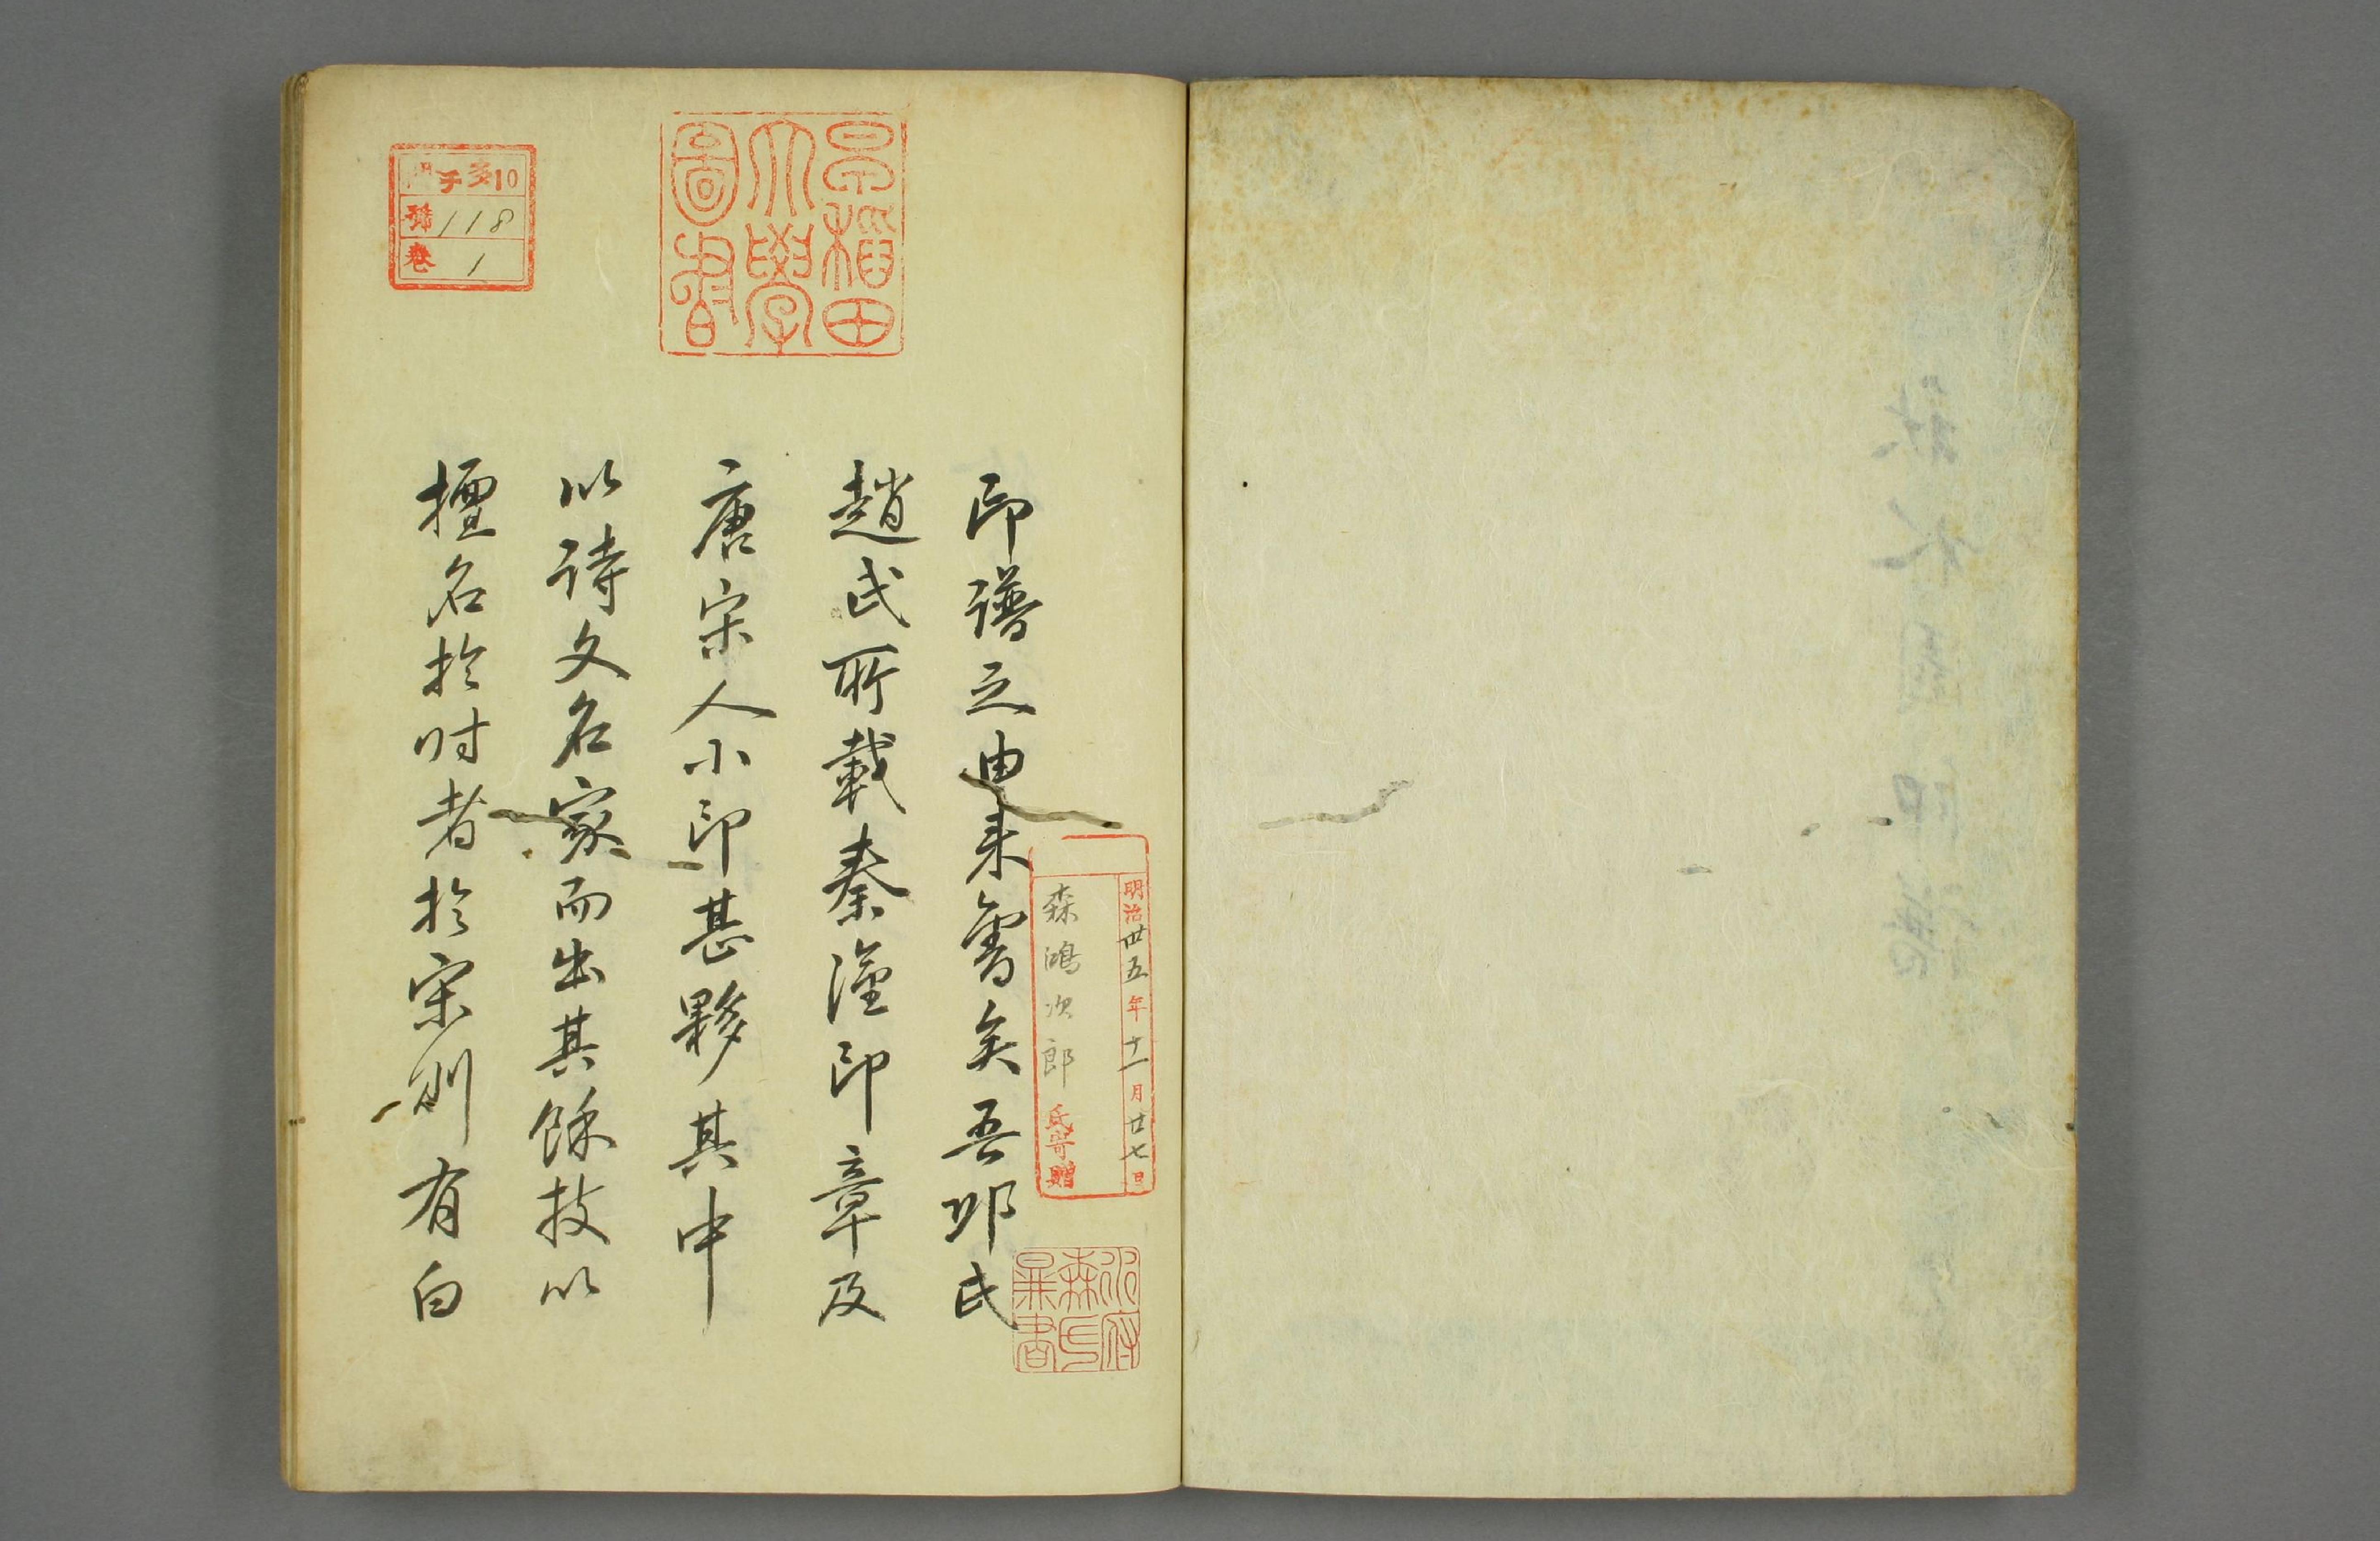 秋水園印譜
早稻田
大學
圖書
號118
卷1
明治卅五年十一月廿七日
森鴻次郎氏寄贈
水府
森氏
印譜之由来舊矣吾邱氏
趙氏所載秦漢印章及
唐宋人小印甚夥其中
以詩文名家而出其餘技以
擅名於时者於宋則有白